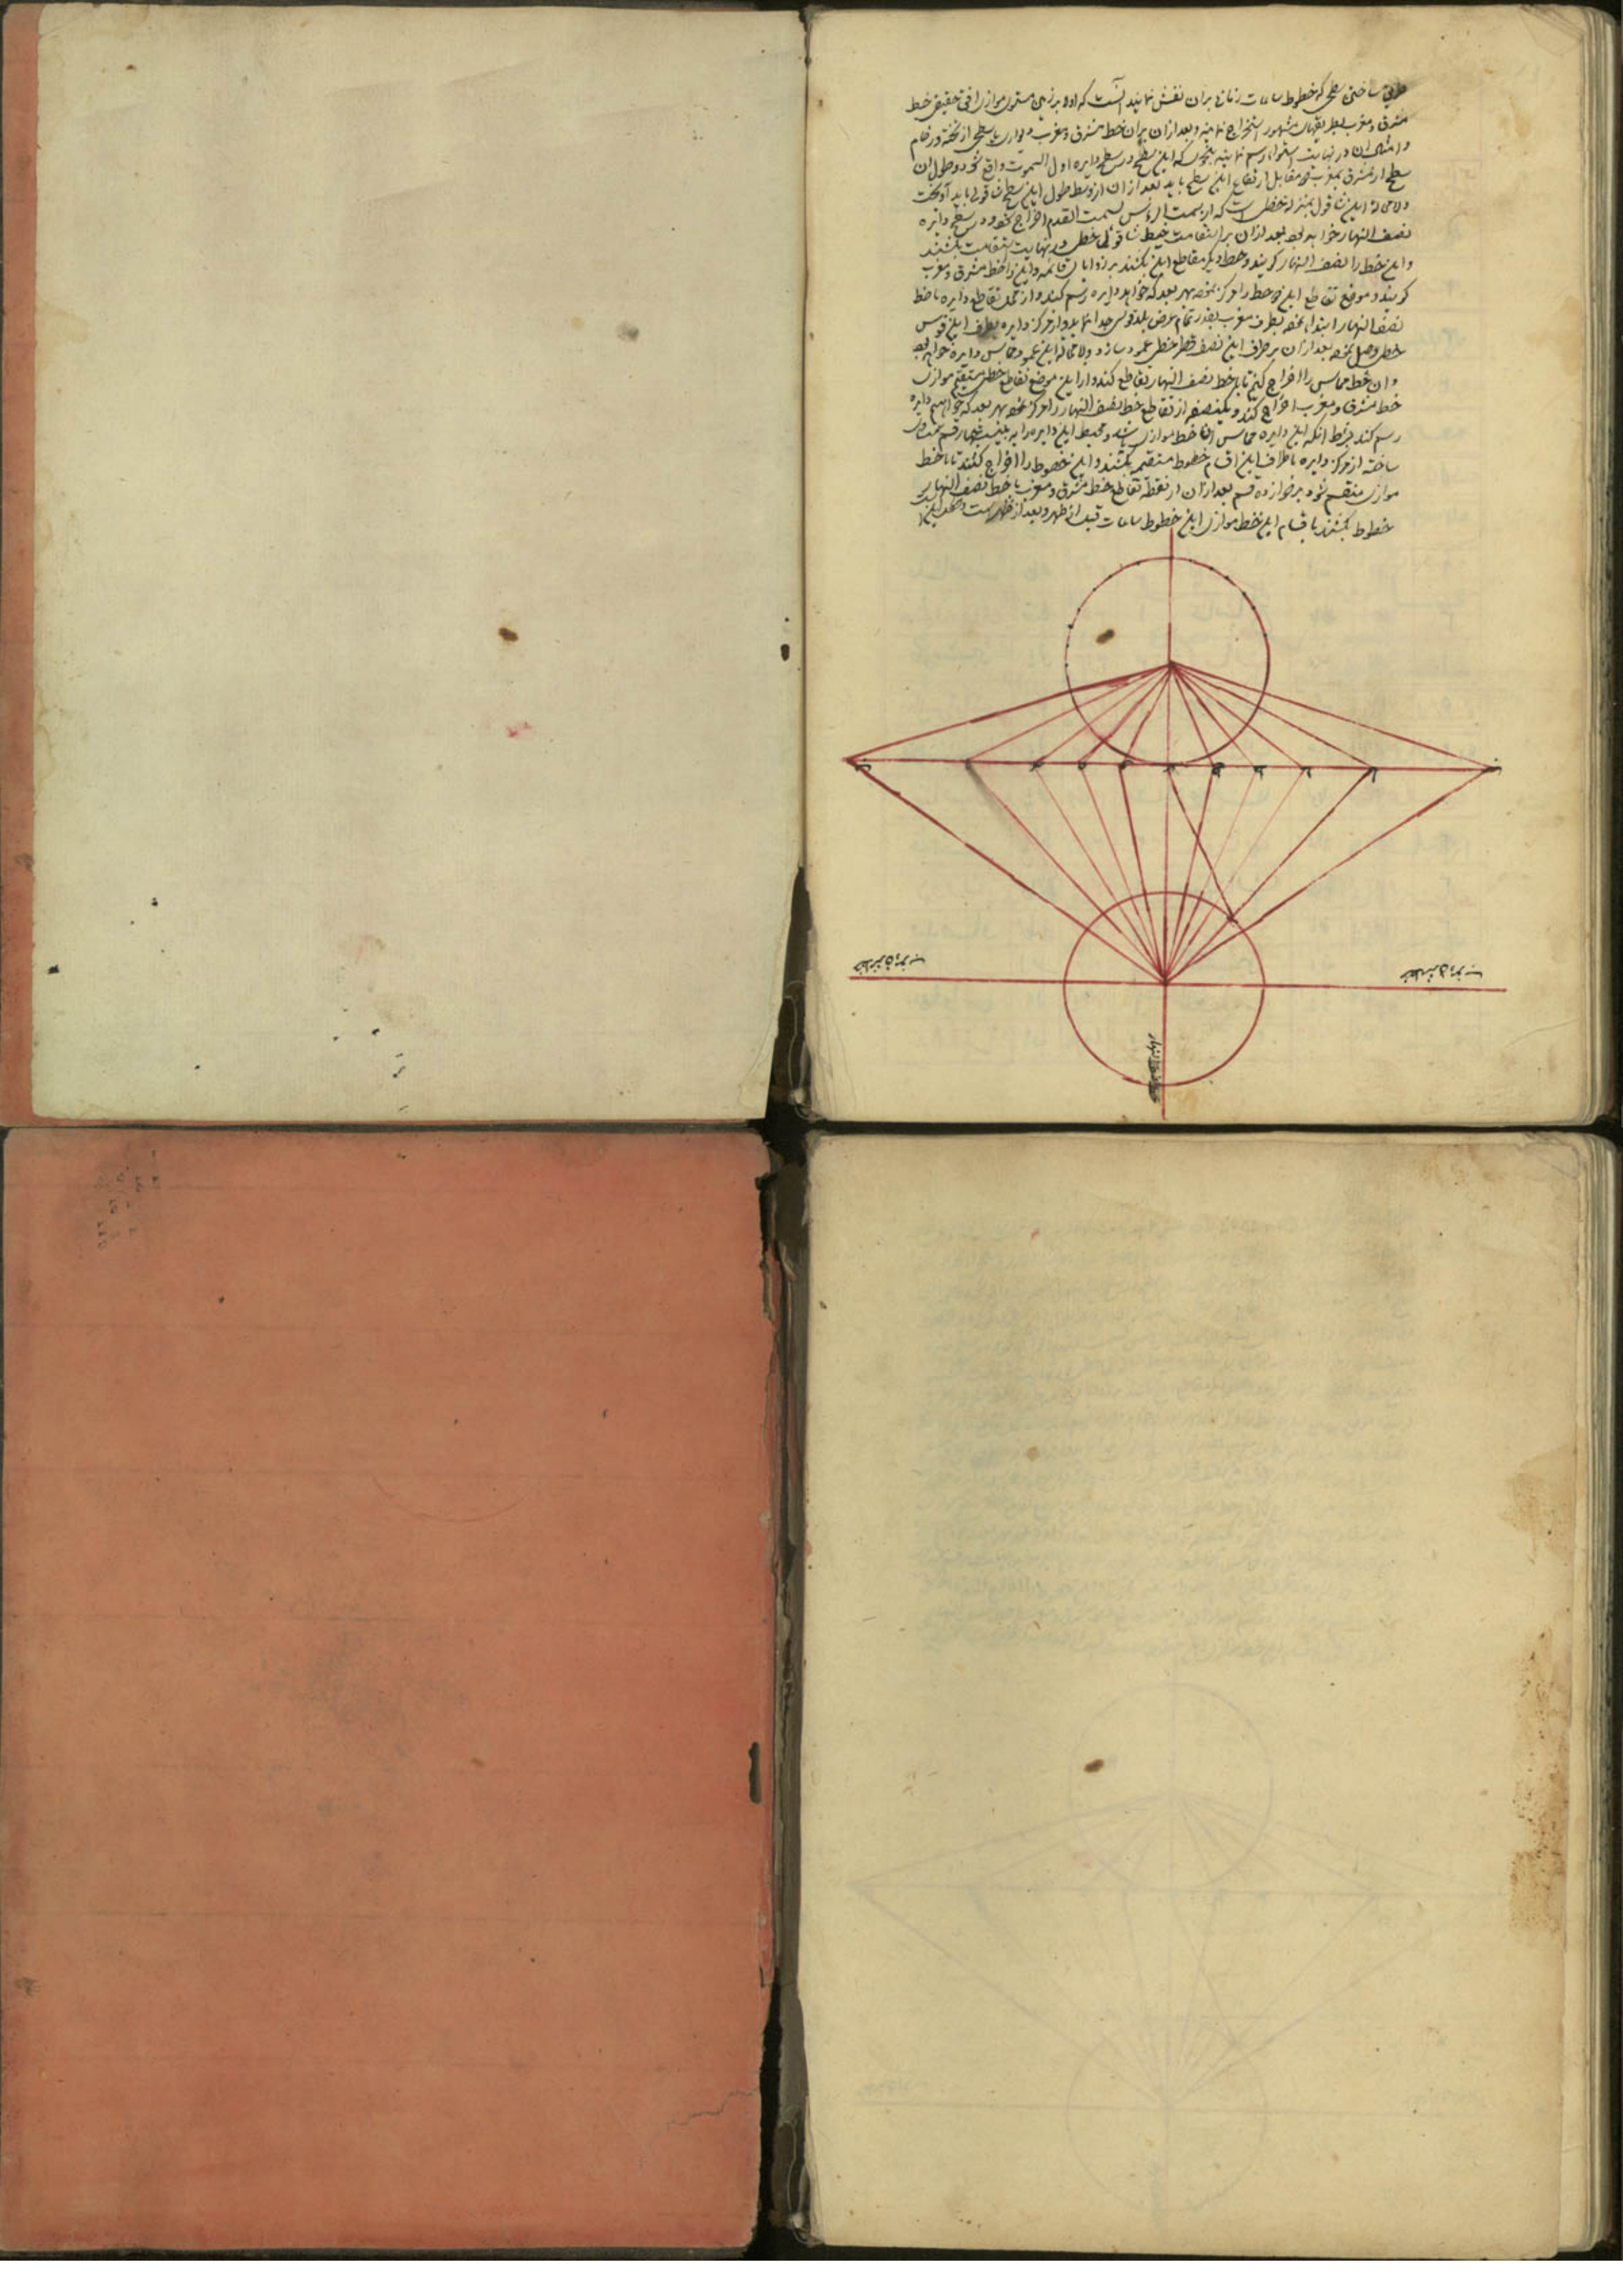 طریق ساختن سطحی که خطوط ساعات زمانی بران نقش نمایند آنست که اولا بر زمین مستوی موازی افق تحقیق خط
مشرق و مغرب بطریقهای مشهور استخراج نمایند و بعد ازان بران خط مشرق و مغرب دیواری یا سطحی از تخته و رخام
و امثال آن در نهایت استوا رسم نمایند بنحوی که این سطح در سطح دایره اول السموت واقع شود و طول آن
سطح از مشرق بمغرب و مقابل ارتفاع این سطح باید بعد ازان از وسط طول این سطح شاقولی باید آویخت
ولا محاله این شاقول بمنزله خطی است که از سمت الرأس بسمت القدم اخراج شود و در سطح دایره
نصف النهار خواهد بود بعد ازان بر استقامت خیط شاقول خطی در نهایت استقامت بکشند
و این خط را نصف النهار گویند و خط دیگر مقاطع این بکنند بر زوایای قائمه و این را خط مشرق و مغرب
گویند و موضع تقاطع این دو خط را مرکز نموده بهر بعد که خواهد دایره رسم کنند و از محل تقاطع دایره با خط
نصف النهار ابتدا نموده بطرف مغرب بقدر تمام عرض بلد قوسی جدا نماید و از مرکز دایره بطرف این قوس
خطی وصل نموده بعد ازان بر طرف این نصف قطر خطی عمود سازد ولا محاله این عمود مماس دایره خواهد بود
و آن خط مماس را اخراج کنیم تا با خط نصف النهار تقاطع کند و از این موضع تقاطع خطی مستقیم موازی
خط مشرق و مغرب اخراج کند و نقطه از تقاطع خط نصف النهار را مرکز نموده بهر بعد که خواهیم دایره
رسم کند بشرط آنکه این دایره مماس آن خط موازی باشد و محیط این دایره را به بیست و چهار قسم متساوی
ساخته از مرکز دایره باطراف این اقسام خطوط مستقیم بکشند و این خطوط را اخراج کنند تا با خط
موازی منقسم شود بر دوازده قسم بعد ازان از نقطه تقاطع خط مشرق و مغرب با خط نصف النهار
خطوط بکشند باقسام این خط موازی این خطوط ساعات قبل از ظهر و بعد از ظهر است
خط مشرق و مغرب
خط مشرق و مغرب
خط نصف النهار